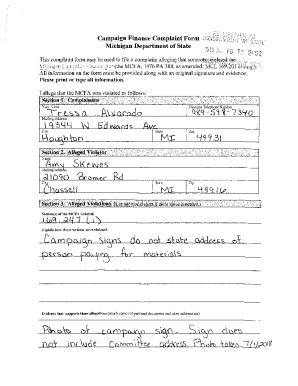 Campaign Finance Complaint Form
Michigan Department of State
This complaint form may be used to file a complaint alleging that someone violated the
Michigan Campaign Finance Act (the MCFA, 1976 PA 388, as amended; MCL 169.201
All information on the form must be provided along with an original signature and evidence.
Please print or type all information.
I allege that the MCFA was violated as follows:
Section 1. Complainant
Your Name
Daytime Telephone Number
Tressa Alvarado
989-598-7340
Mailing Address
19344 W Edwards Ave
City
State
Zip
Houghton
MI
49931
Section 2. Alleged Violator
Name
Amy Skewes
Mailing Address
21090 Bramer Rd
City
State
Zip
Chassell
MI
49916
Section 3. Alleged Violations
Section(s) of the MCFA violated:
169.247 (1)
Explain how those sections were violated:
Campaign signs do not state address of
person paying for materials
Evidence that supports those allegations
Photo of campaign sign. Sign does
not include Committee address. Photo taken 7/1/2018